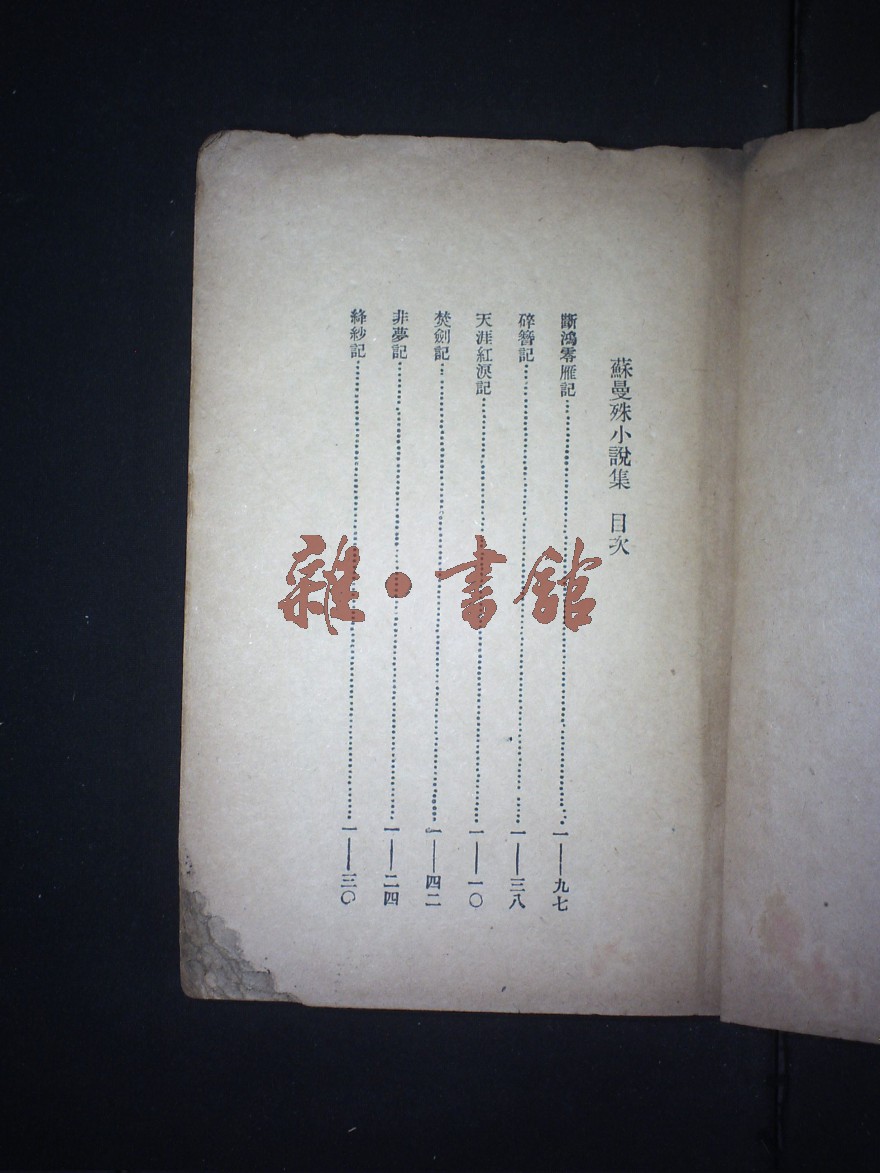 蘇曼殊小說集　目次
斷鴻零雁記…………一——九七
碎簪記…………一——三八
天涯紅淚記…………一——一〇
焚劍記…………一——四二
非夢記…………一——二四
絳紗記…………一——三〇
雜·書館